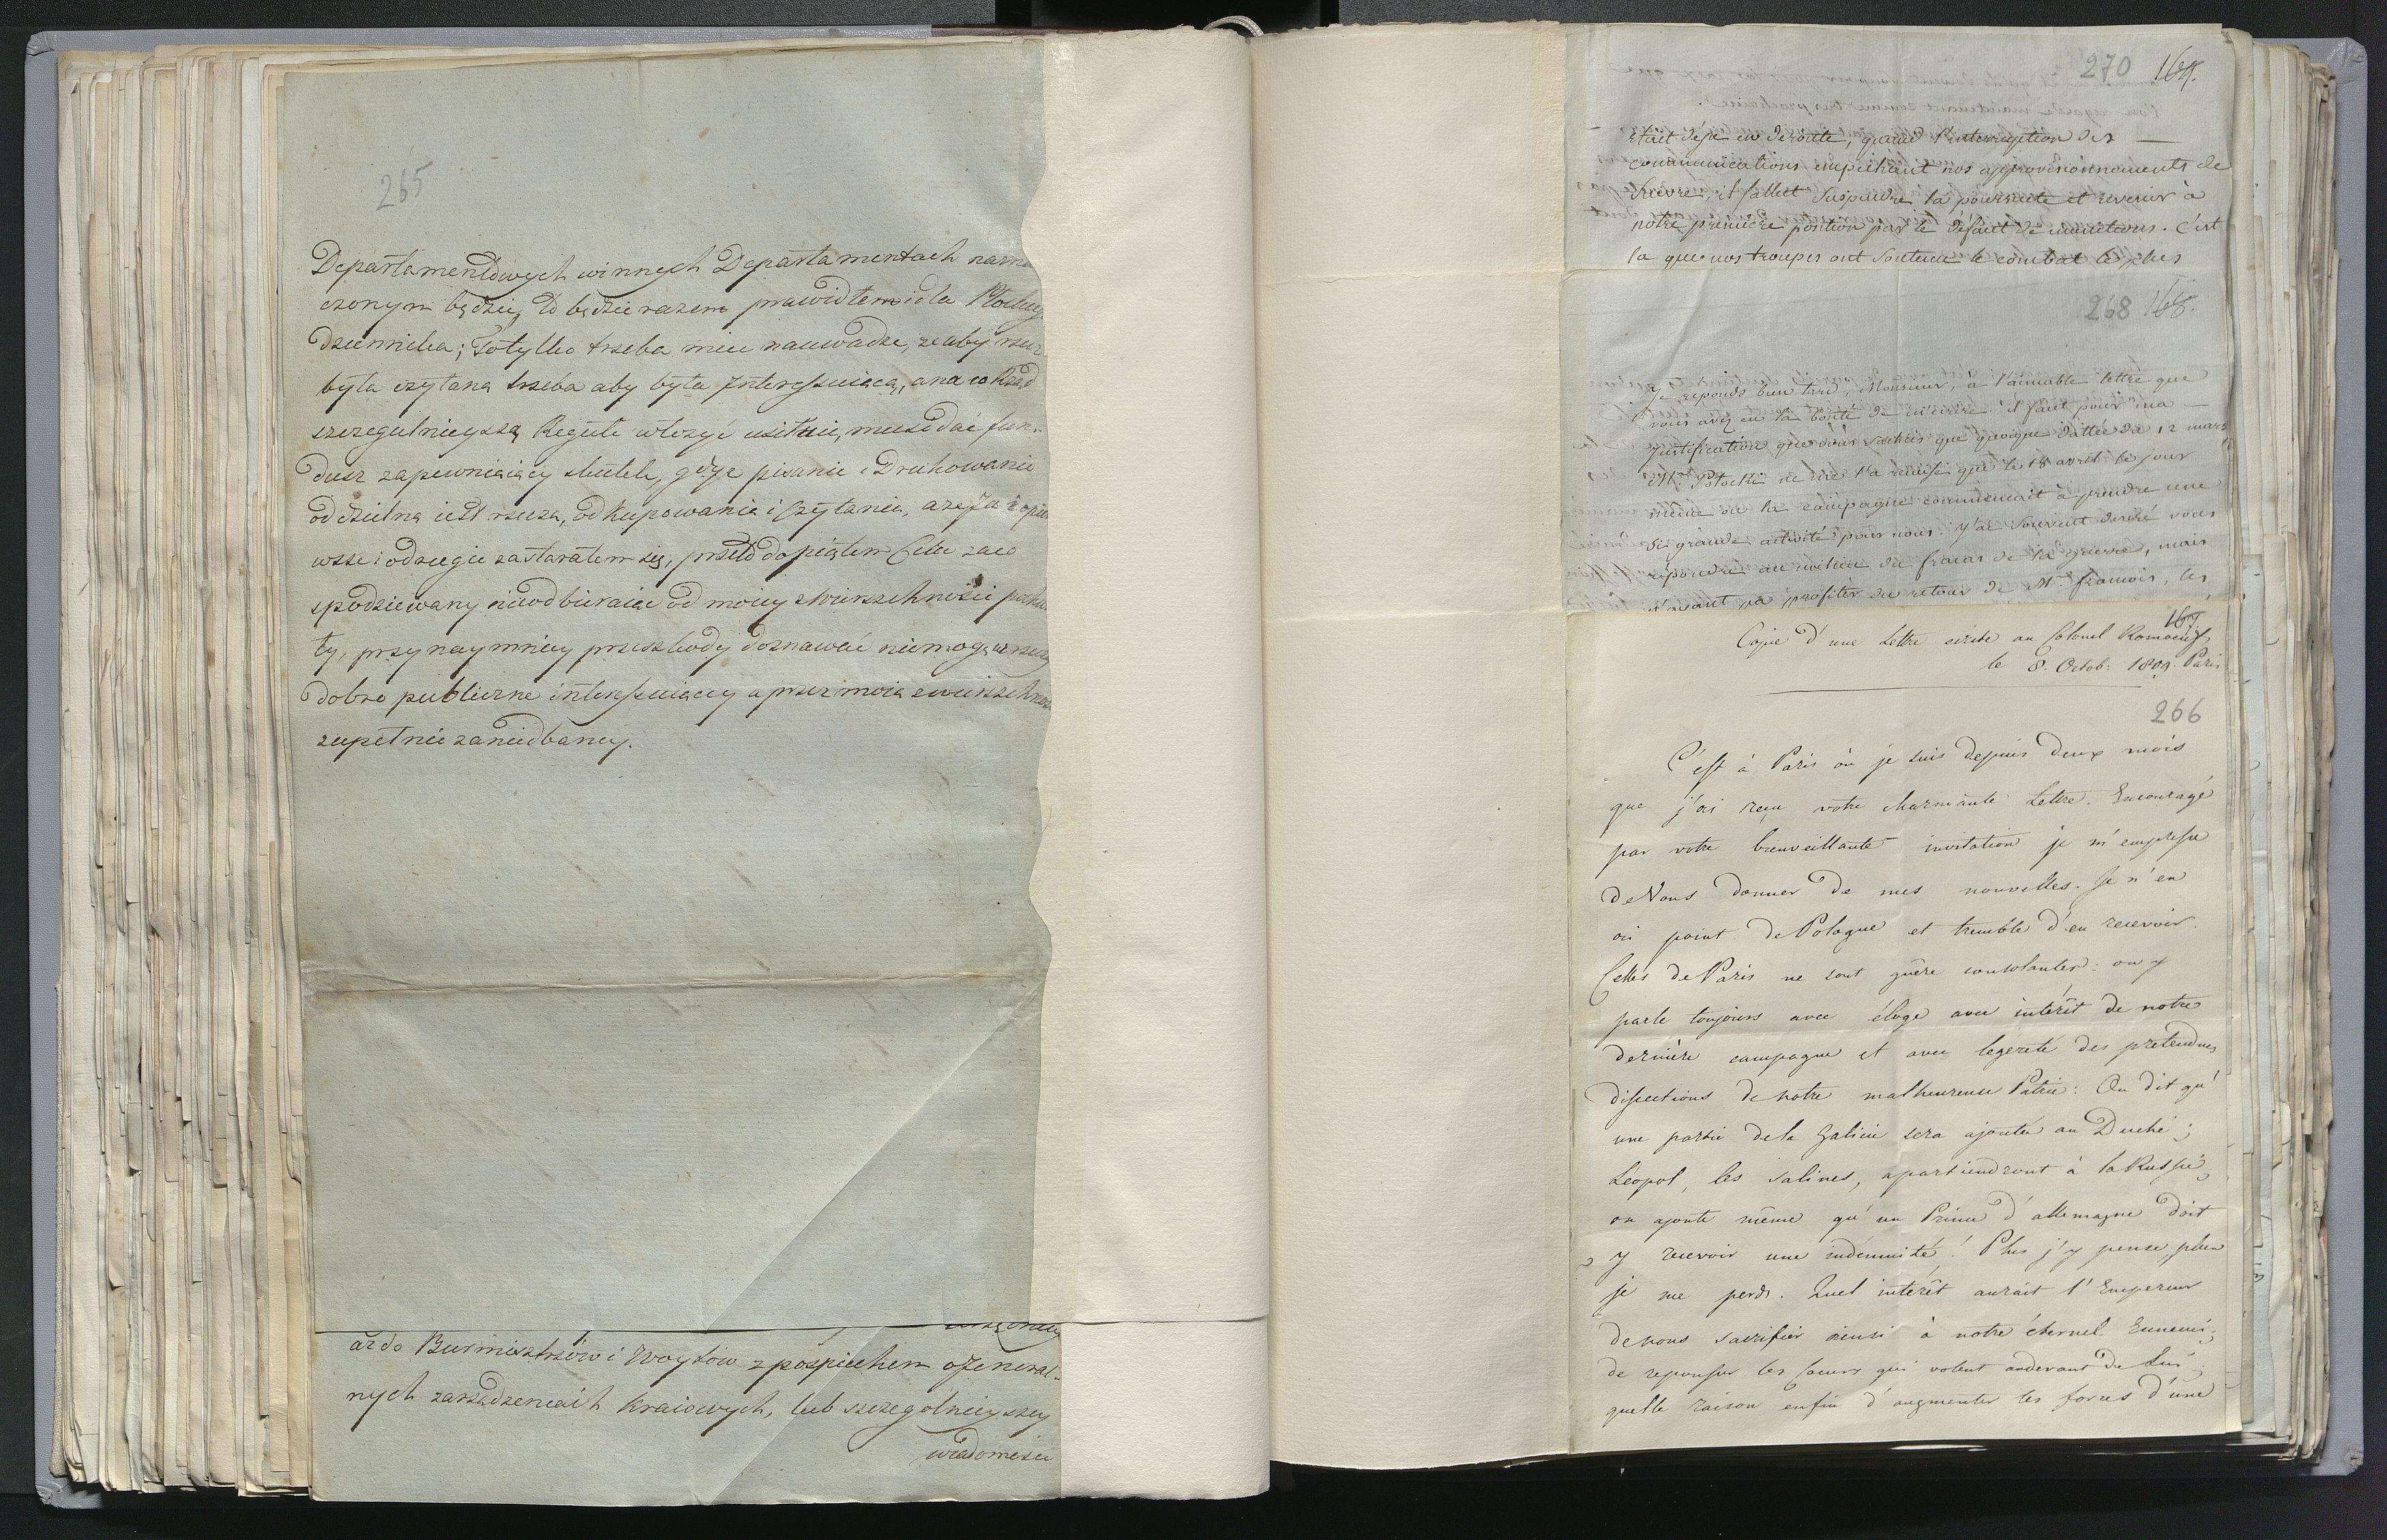 265
Departamentowych w innych Departamentach
czonym będzie, to będzie razem prawidłem i dla
dziennika; To tylko trzeba miec na uwadze, ze aby
była czytana trzeba aby była Interessuiącą, a na co Rząd
szczegulnieyszą Regułe włozyć usilnie, musi dać fun-
dusz zapewniaiący skutek, gdyz pisanie i Drukowanie
oddzielną iest rzeczą, od kupowania i czytania, a zeja o
wsze i o drugie zastarałem się, przeto dopiąłem Celu
spodziewany nieodbieraiąc od moiey zwierzchności
ty, przynaymniey przeszkody doznawać niemogę w
dobro publiczne interessuiącey a przez moią
zupełnie zaniedbaney.
az do Burmistrzów i Woytów z pospiechem o General-
nych zarządzeniach kraiowych, lub szczegolnieyszey
wiadomości
270 169.
etait déja en deroute, quand l'interruption des
communications empêchant nos approvisionnements de
suivre, il fallut suspendre la poursuite et revenir à
notre première position par le défaut de munitions. C'est
la que nos troupes ont soutenu le combat le plus
268 168.
Je reponds bien tard, Monsieur, à l'aimable lettre que
vous avez eu la bonté de m'écrire. il faut pour ma
justification que vous sachiez que quoique dattée du 12 mars
Mr. Potocki ne me l'a remise que le 18 avril le jour
même où la campagne commencait à prendre une
si grande activité pour nous. J'ai souvent desiré vous
répondre au milieu du fracas de la guerre, mais
n'ayant pu profiter du retour de Mr. francois, les
167
Copie d'une Lettre ecrite au Colonel
le 8. Octob: 1809. Paris
266
C'est à Paris où je suis depuis deux mois
que j'ai reçu votre charmante Lettre. Encouragé
par votre bienveillante invitation je m'empresse
de Vous donner de mes nouvelles. Je n'en
ai point de Pologne et tremble d'en recevoir.
Celles de Paris ne sont guère consolantes: on y
parle toujours avec éloge avec intérêt de notre
dernière campagne et avec legereté des pretendues
dissections de notre malheureuse Patrie: On dit qu'
une partie de la Galicie sera ajoutée au Duché;
Léopol, les salines, apartiendront à la Russie;
on ajoute même qu'un Prince d'allemagne doit
y recevoir une indemnité! Plus j'y pense, plus
je me perds. Quel intérêt aurait l'Empereur
de nous sacrifier ainsi à notre éternel Ennemi;
de repousser les coeurs qui volent audevant de Lui;
quelle raison enfin d'augmenter les forces d'une